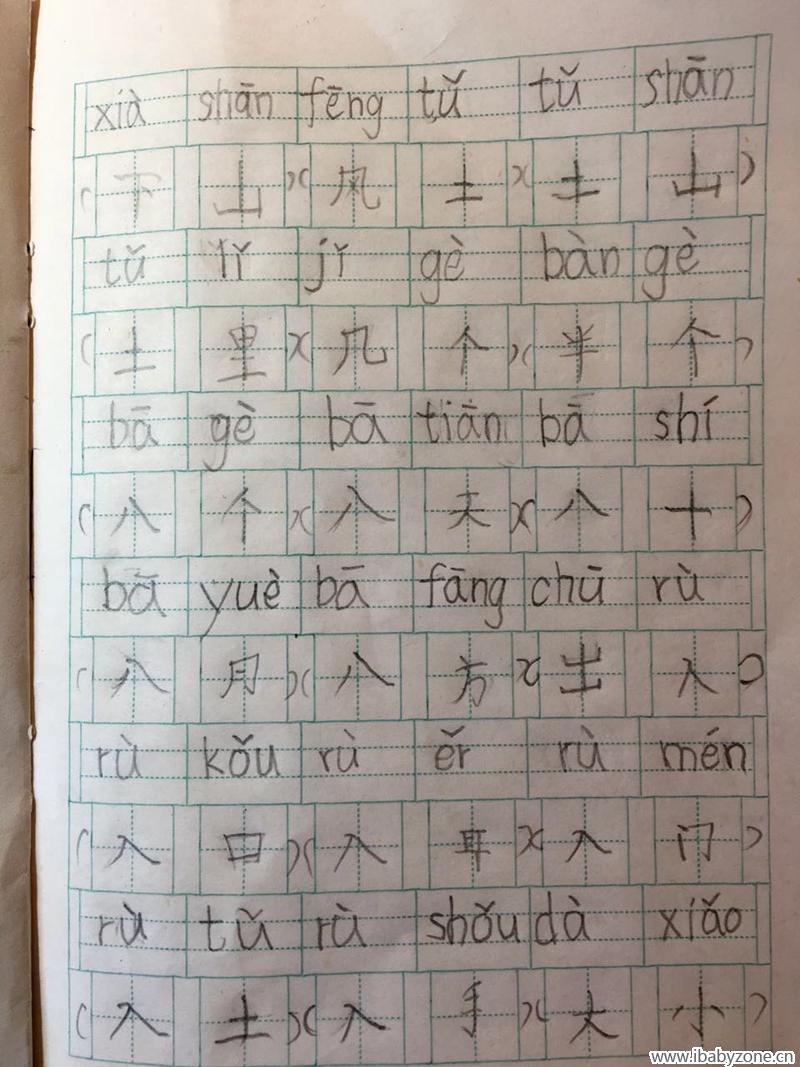 xià shān fēng tǔ tǔ shān
(下山)(风土)(土山)
tǔ lǐ jǐ gè bàn gè
(土里)(几个)(半个)
bā gè bā tiān bā shí
(八个)(八天)(八十)
bā yuè bā fāng chū rù
(八月)(八方)(出入)
rù kǒu rù ěr rù mén
(入口)(入耳)(入门)
rù tǔ rù shǒu dà xiǎo
(入土)(入手)(大小)
www.ibabyzone.cn